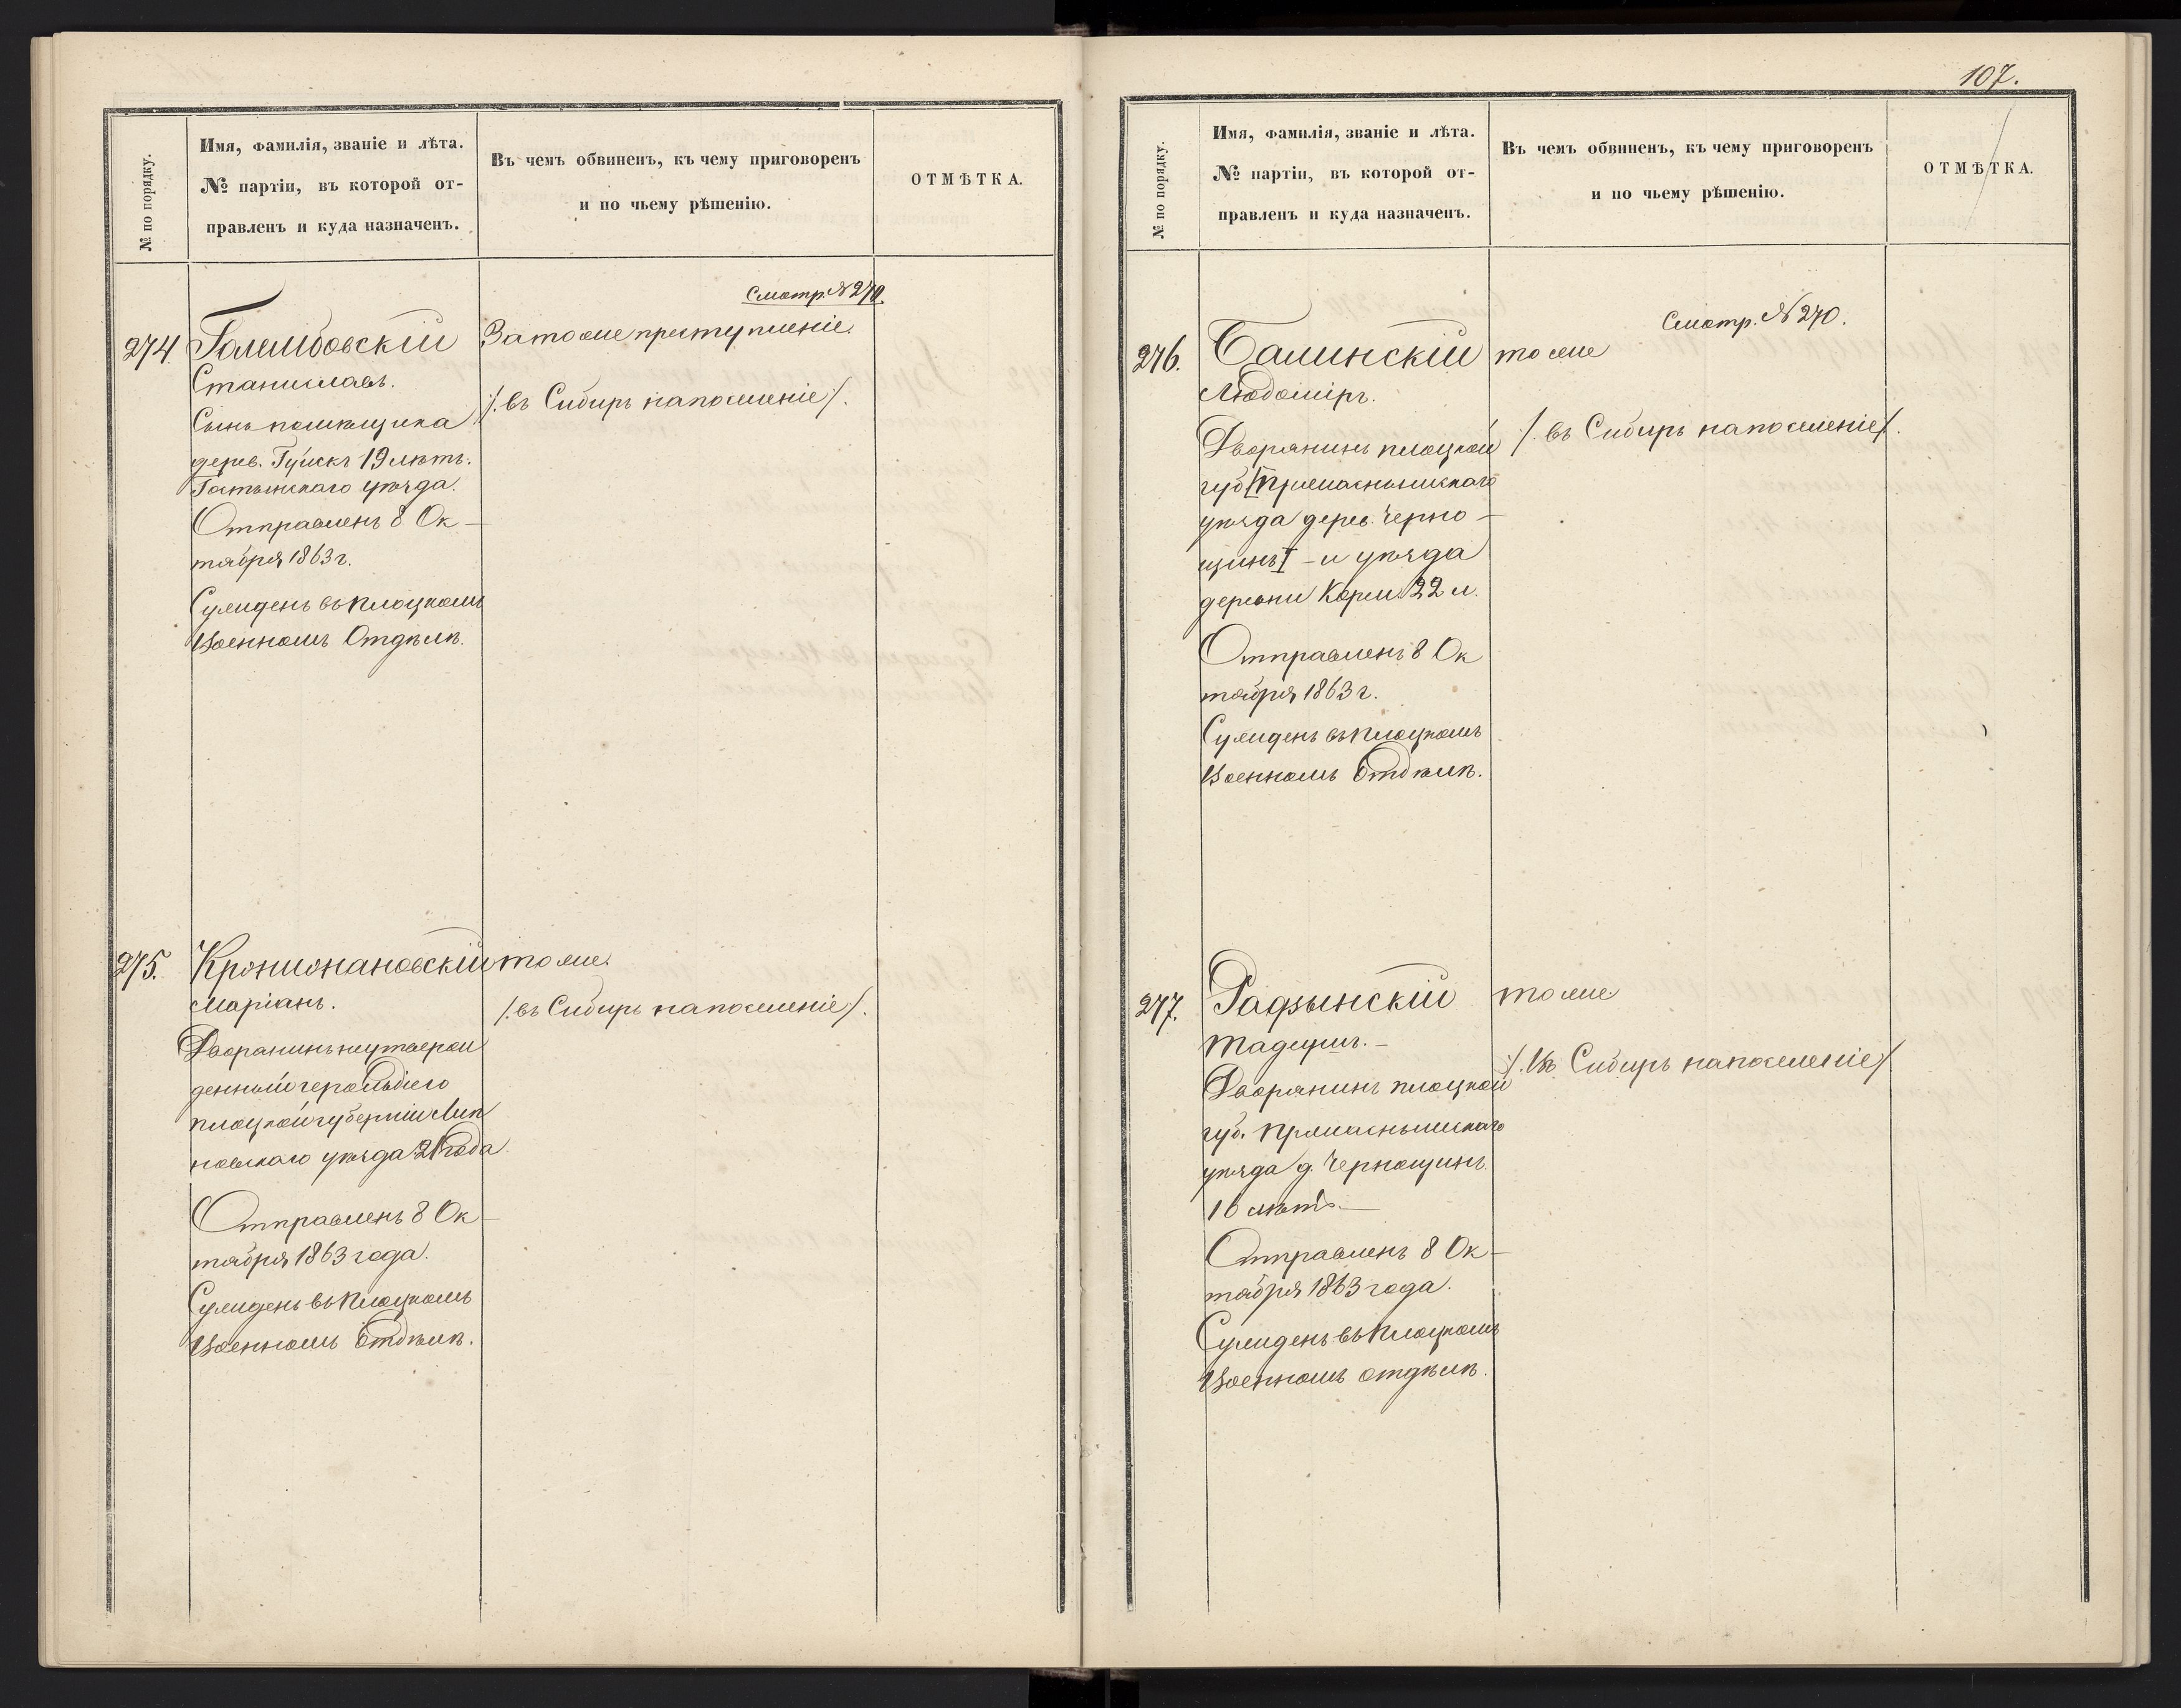 № по порядку.
Имя, фамилія, званіе и лѣта.
№ партіи, въ которой от-
правленъ и куда назначенъ.
Въ чемъ обвиненъ, къ чему приговоренъ
и по чьему рѣшенію.
ОТМѢТКА.
Смотр. № 270.
274.
Голембовскій
Станиславъ.
Сынъ помѣщика
дерев. 19 лѣтъ.
Гостынскаго уѣзда.
Отправленъ 8 Ок-
тября 1863 г.
Сужденъ въ Плоцкомъ
Военномъ Отдѣлѣ.
За тоже преступленіе.
/. въ Сибирь на поселеніе /.
275.
Маріанъ.
Дворянинъ неутверж
денный герольдіею
Плоцкой губерніи Лип
новскаго уѣзда 21 года.
Отправленъ 8 Ок-
тября 1863 года.
Сужденъ въ Плоцкомъ
Военномъ Отдѣлѣ.
тоже.
/. въ Сибирь на поселеніе /.
107.
№ по порядку.
Имя, фамилія, званіе и лѣта.
№ партіи, въ которой от-
правленъ и куда назначенъ.
Въ чемъ обвиненъ, къ чему приговоренъ
и по чьему рѣшенію.
ОТМѢТКА.
Смотр. № 270.
276.
Балинскій
Людоміръ.
Дворянинъ Плоцкой
губ. [Пржаснышскаго
уѣзда дерев. Черно-
цинъ] - и уѣзда
деревни 22 л.
Отправленъ 8 Ок
тября 1863 г.
Сужденъ въ Плоцкомъ
Военномъ Отдѣлѣ.
тоже
/. въ Сибирь на поселеніе /.
277.
Радзынскій
Тадеушъ. -
Дворянинъ Плоцкой
губ. Пржаснышскаго
уѣзда д. Черноцинъ.
16 лѣтъ. -
Отправленъ 8 Ок-
тября 1863 года.
Сужденъ въ Плоцкомъ
Военномъ отдѣлѣ.
тоже
/. Въ Сибирь на поселеніе /